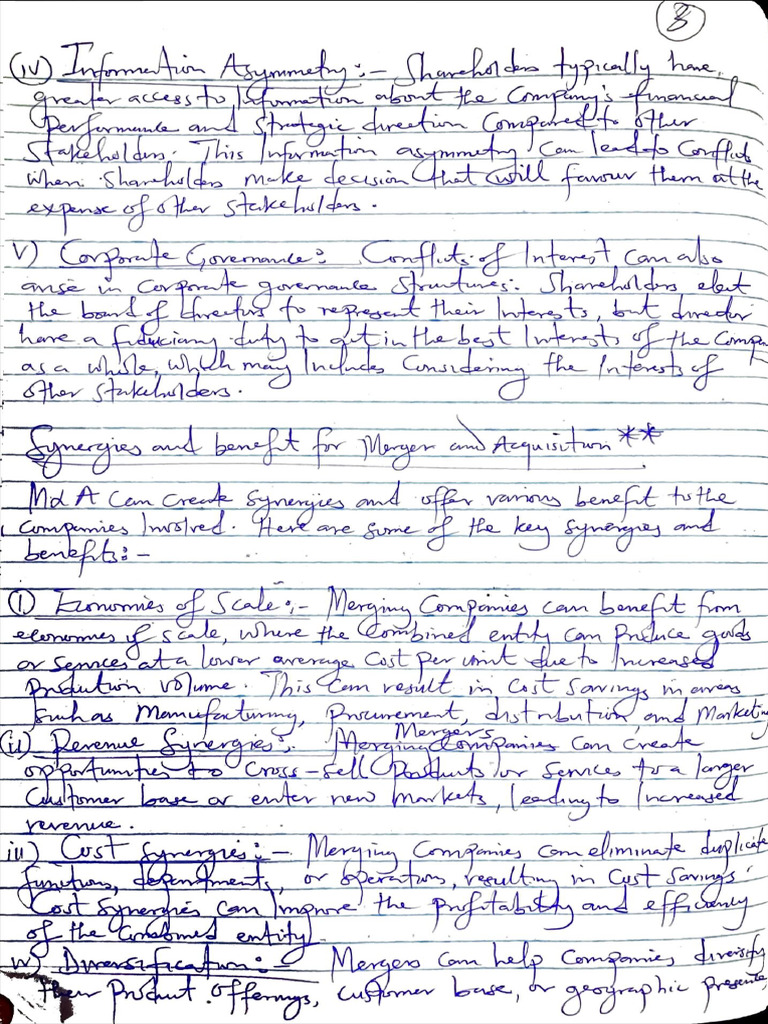 8
(iv) Information Asymmetry:- Shareholders typically have
greater access to Information about the Company's financial
performance and Strategic direction Compared to other
Stakeholders. This Information asymmetry Can lead to Conflicts
when Shareholders make decision that will favour them at the
expense of other Stakeholders.
V) Corporate Governance: Conflicts of Interest Can also
arise in Corporate governance Structures. Shareholders elect
the board of directors to represent their Interests, but director
have a fiduciary duty to act in the best Interests of the Company
as a whole, which may Includes Considering the Interests of
other Stakeholders.
Synergies and benefit for Merger and Acquisition **
M&A Can Create Synergies and offer various benefit to the
Companies Involved. Here are some of the key Synergies and
benefits:-
(i) Economies of Scale:- Merging Companies can benefit from
economies of scale, where the Combined entity Can Produce goods
or Services at a lower average Cost per unit due to Increased
Production volume. This Can result in Cost Savings in areas
Such as Manufacturing, Procurement, distribution, and Marketing
Mergers
(ii) Revenue Synergies:- Merging Companies Can Create
opportunities to Cross-sell Products or Services to a larger
Customer base or enter new markets, leading to Increased
revenue.
iii) Cost Synergies:- Merging Companies Can eliminate duplicate
functions, departments, or operations, resulting in Cost Savings.
Cost Synergies Can Improve the profitability and efficiency
of the Combined entity
iv) Diversification:- Mergers Can help Companies diversify
their Product Offerings, Customer base, or geographic presence,